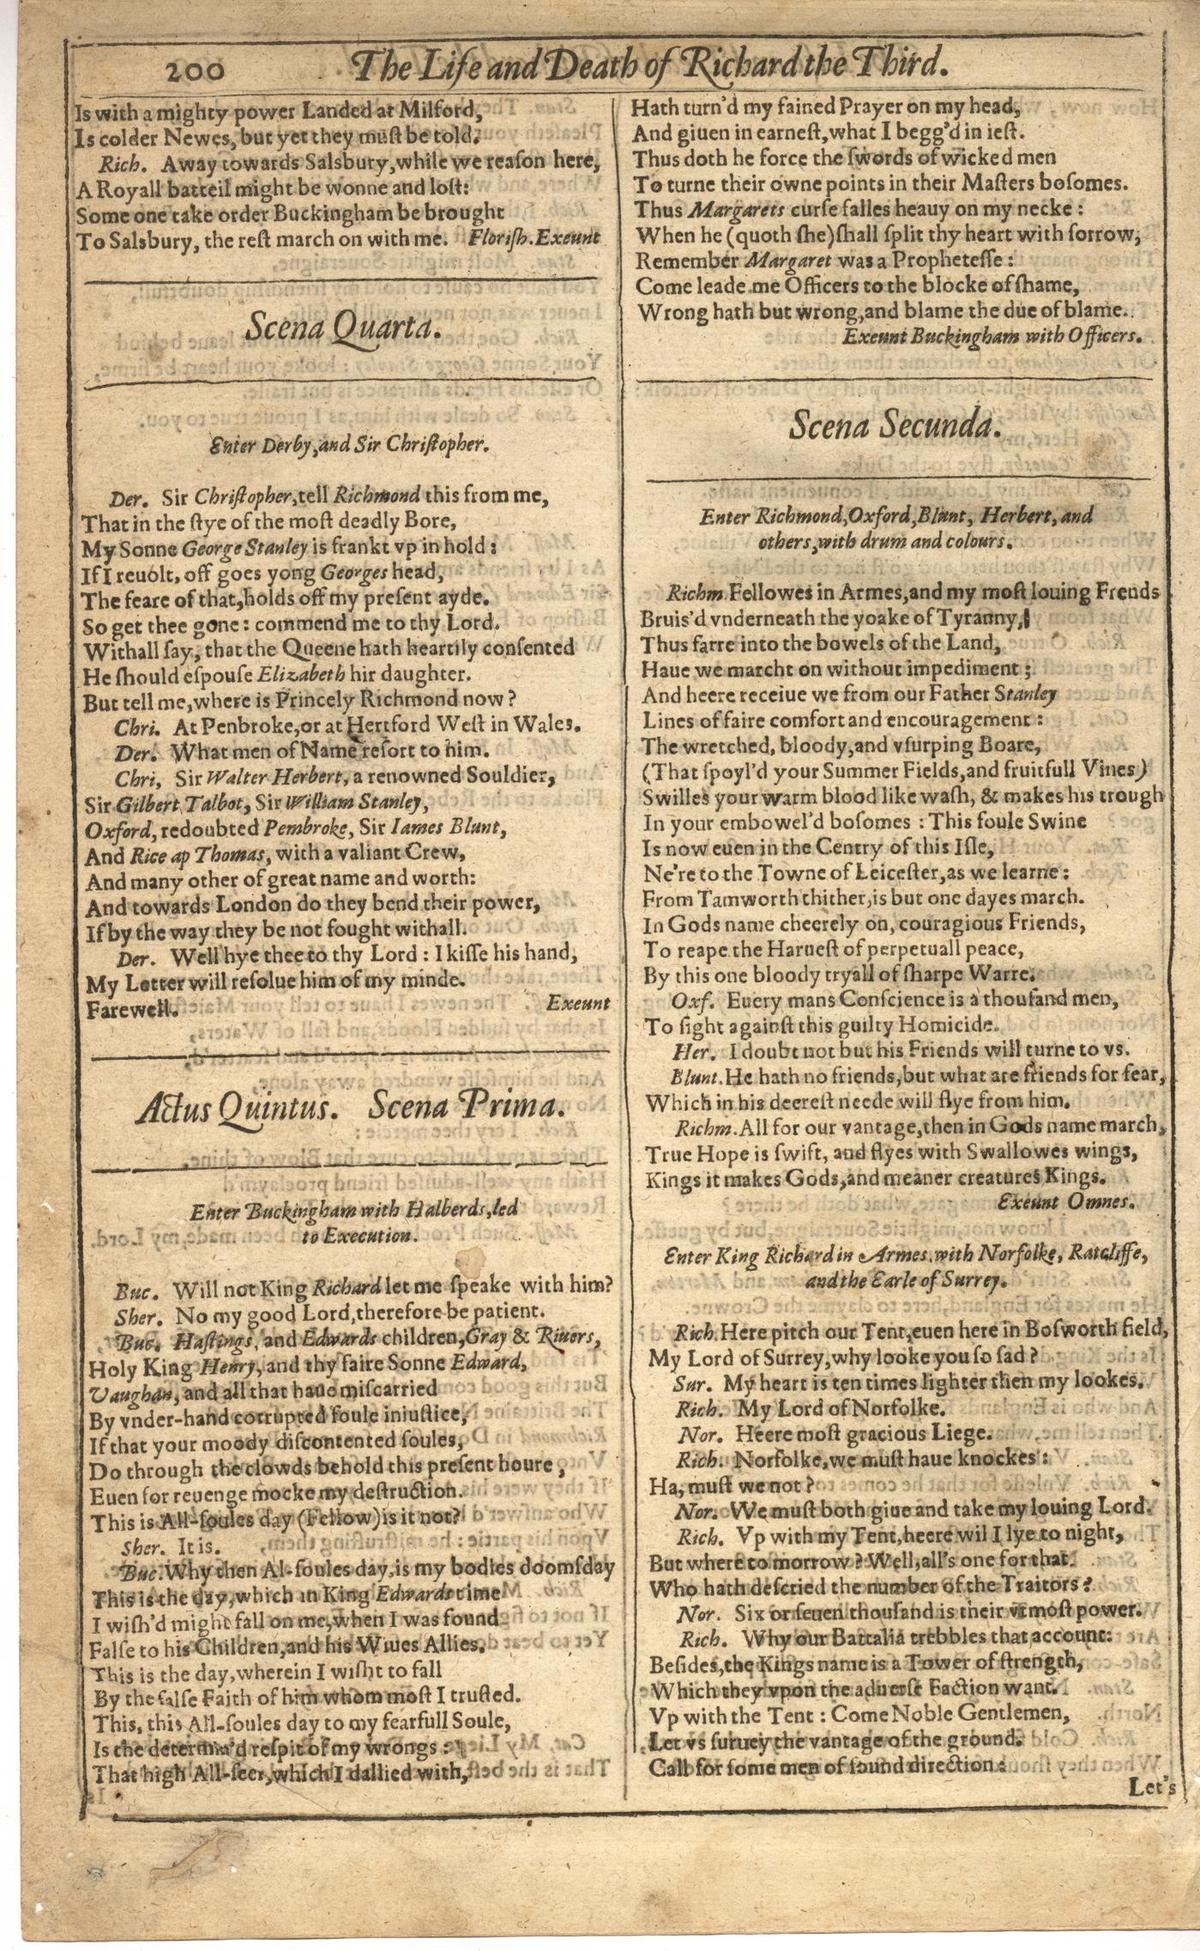 200
The Life and Death of Richard the Third.
Is with a mighty power Landed at Milford,
Is colder Newes, but yet they muſt be told.
Rich. Away towards Salsbury, while we reaſon here,
A Royall batteil might be wonne and loſt:
Some one take order Buckingham be brought
To Salsbury, the reſt march on with me. Floriſh. Exeunt
Scena Quarta.
Enter Derby, and Sir Chriſtopher.
Der. Sir Chriſtopher, tell Richmond this from me,
That in the ſtye of the moſt deadly Bore,
My Sonne George Stanley is frankt vp in hold:
If I reuolt, off goes yong Georges head,
The feare of that, holds off my preſent ayde.
So get thee gone: commend me to thy Lord.
Withall ſay, that the Queene hath heartily conſented
He ſhould eſpouſe Elizabeth hir daughter.
But tell me, where is Princely Richmond now?
Chri. At Penbroke, or at Hertford Weſt in Wales.
Der. What men of Name reſort to him.
Chri, Sir Walter Herbert, a renowned Souldier,
Sir Gilbert Talbot, Sir William Stanley,
Oxford, redoubted Pembroke, Sir Iames Blunt,
And Rice ap Thomas, with a valiant Crew,
And many other of great name and worth:
And towards London do they bend their power,
If by the way they be not fought withall.
Der. Well hye thee to thy Lord: I kiſſe his hand,
My Letter will reſolue him of my minde.
Farewell. Exeunt
Actus Quintus. Scena Prima.
Enter Buckingham with Halberds, led
to Execution.
Buc. Will not King Richard let me ſpeake with him?
Sher. No my good Lord, therefore be patient.
Buc. Haſtings, and Edwards children, Gray & Riuers,
Holy King Henry, and thy faire Sonne Edward,
Vaughan, and all that haue miſcarried
By vnder-hand corrupted foule iniuſtice,
If that your moody diſcontented ſoules,
Do through the clowds behold this preſent houre,
Euen for reuenge mocke my deſtruction.
This is All-ſoules day (Fellow) is it not?
Sher. It is.
Buc. Why then Al-ſoules day, is my bodies doomſday
This is the day, which in King Edwards time
I wiſh'd might fall on me, when I was found
Falſe to his Children, and his Wiues Allies.
This is the day, wherein I wiſht to fall
By the falſe Faith of him whom moſt I truſted.
This, this All-ſoules day to my fearfull Soule,
Is the determin'd reſpit of my wrongs:
That high All-ſeer, which I dallied with,
Hath turn'd my fained Prayer on my head,
And giuen in earneſt, what I begg'd in ieſt.
Thus doth he force the ſwords of wicked men
To turne their owne points in their Maſters boſomes.
Thus Margarets curſe falles heauy on my necke:
When he (quoth ſhe) ſhall ſplit thy heart with ſorrow,
Remember Margaret was a Propheteſſe:
Come leade me Officers to the blocke of ſhame,
Wrong hath but wrong, and blame the due of blame.
Exeunt Buckingham with Officers.
Scena Secunda.
Enter Richmond, Oxford, Blunt, Herbert, and
others, with drum and colours.
Richm. Fellowes in Armes, and my moſt louing Frends
Bruis'd vnderneath the yoake of Tyranny,
Thus farre into the bowels of the Land,
Haue we marcht on without impediment;
And heere receiue we from our Father Stanley
Lines of faire comfort and encouragement:
The wretched, bloody, and vſurping Boare,
(That ſpoyl'd your Summer Fields, and fruitfull Vines)
Swilles your warm blood like waſh, & makes his trough
In your embowel'd boſomes: This foule Swine
Is now euen in the Centry of this Iſle,
Ne're to the Towne of Leiceſter, as we learne:
From Tamworth thither, is but one dayes march.
In Gods name cheerely on, couragious Friends,
To reape the Harueſt of perpetuall peace,
By this one bloody tryall of ſharpe Warre.
Oxf. Euery mans Conſcience is a thouſand men,
To fight againſt this guilty Homicide.
Her. I doubt not but his Friends will turne to vs.
Blunt. He hath no friends, but what are friends for fear,
Which in his deereſt neede will flye from him.
Richm. All for our vantage, then in Gods name march,
True Hope is ſwift, and flyes with Swallowes wings,
Kings it makes Gods, and meaner creatures Kings.
Exeunt Omnes.
Enter King Richard in Armes, with Norfolke, Ratcliffe,
and the Earle of Surrey.
Rich. Here pitch our Tent, euen here in Boſworth field,
My Lord of Surrey, why looke you ſo ſad?
Sur. My heart is ten times lighter then my lookes.
Rich. My Lord of Norfolke.
Nor. Heere moſt gracious Liege.
Rich. Norfolke, we muſt haue knockes:
Ha, muſt we not?
Nor. We muſt both giue and take my louing Lord.
Rich. Vp with my Tent, heere wil I lye to night,
But where to morrow? Well, all's one for that.
Who hath deſcried the number of the Traitors?
Nor. Six or ſeuen thouſand is their vtmoſt power.
Rich. Why our Battalia trebbles that account:
Beſides, the Kings name is a Tower of ſtrength,
Which they vpon the aduerſe Faction want.
Vp with the Tent: Come Noble Gentlemen,
Let vs ſuruey the vantage of the ground.
Call for ſome men of ſound direction:
Let's